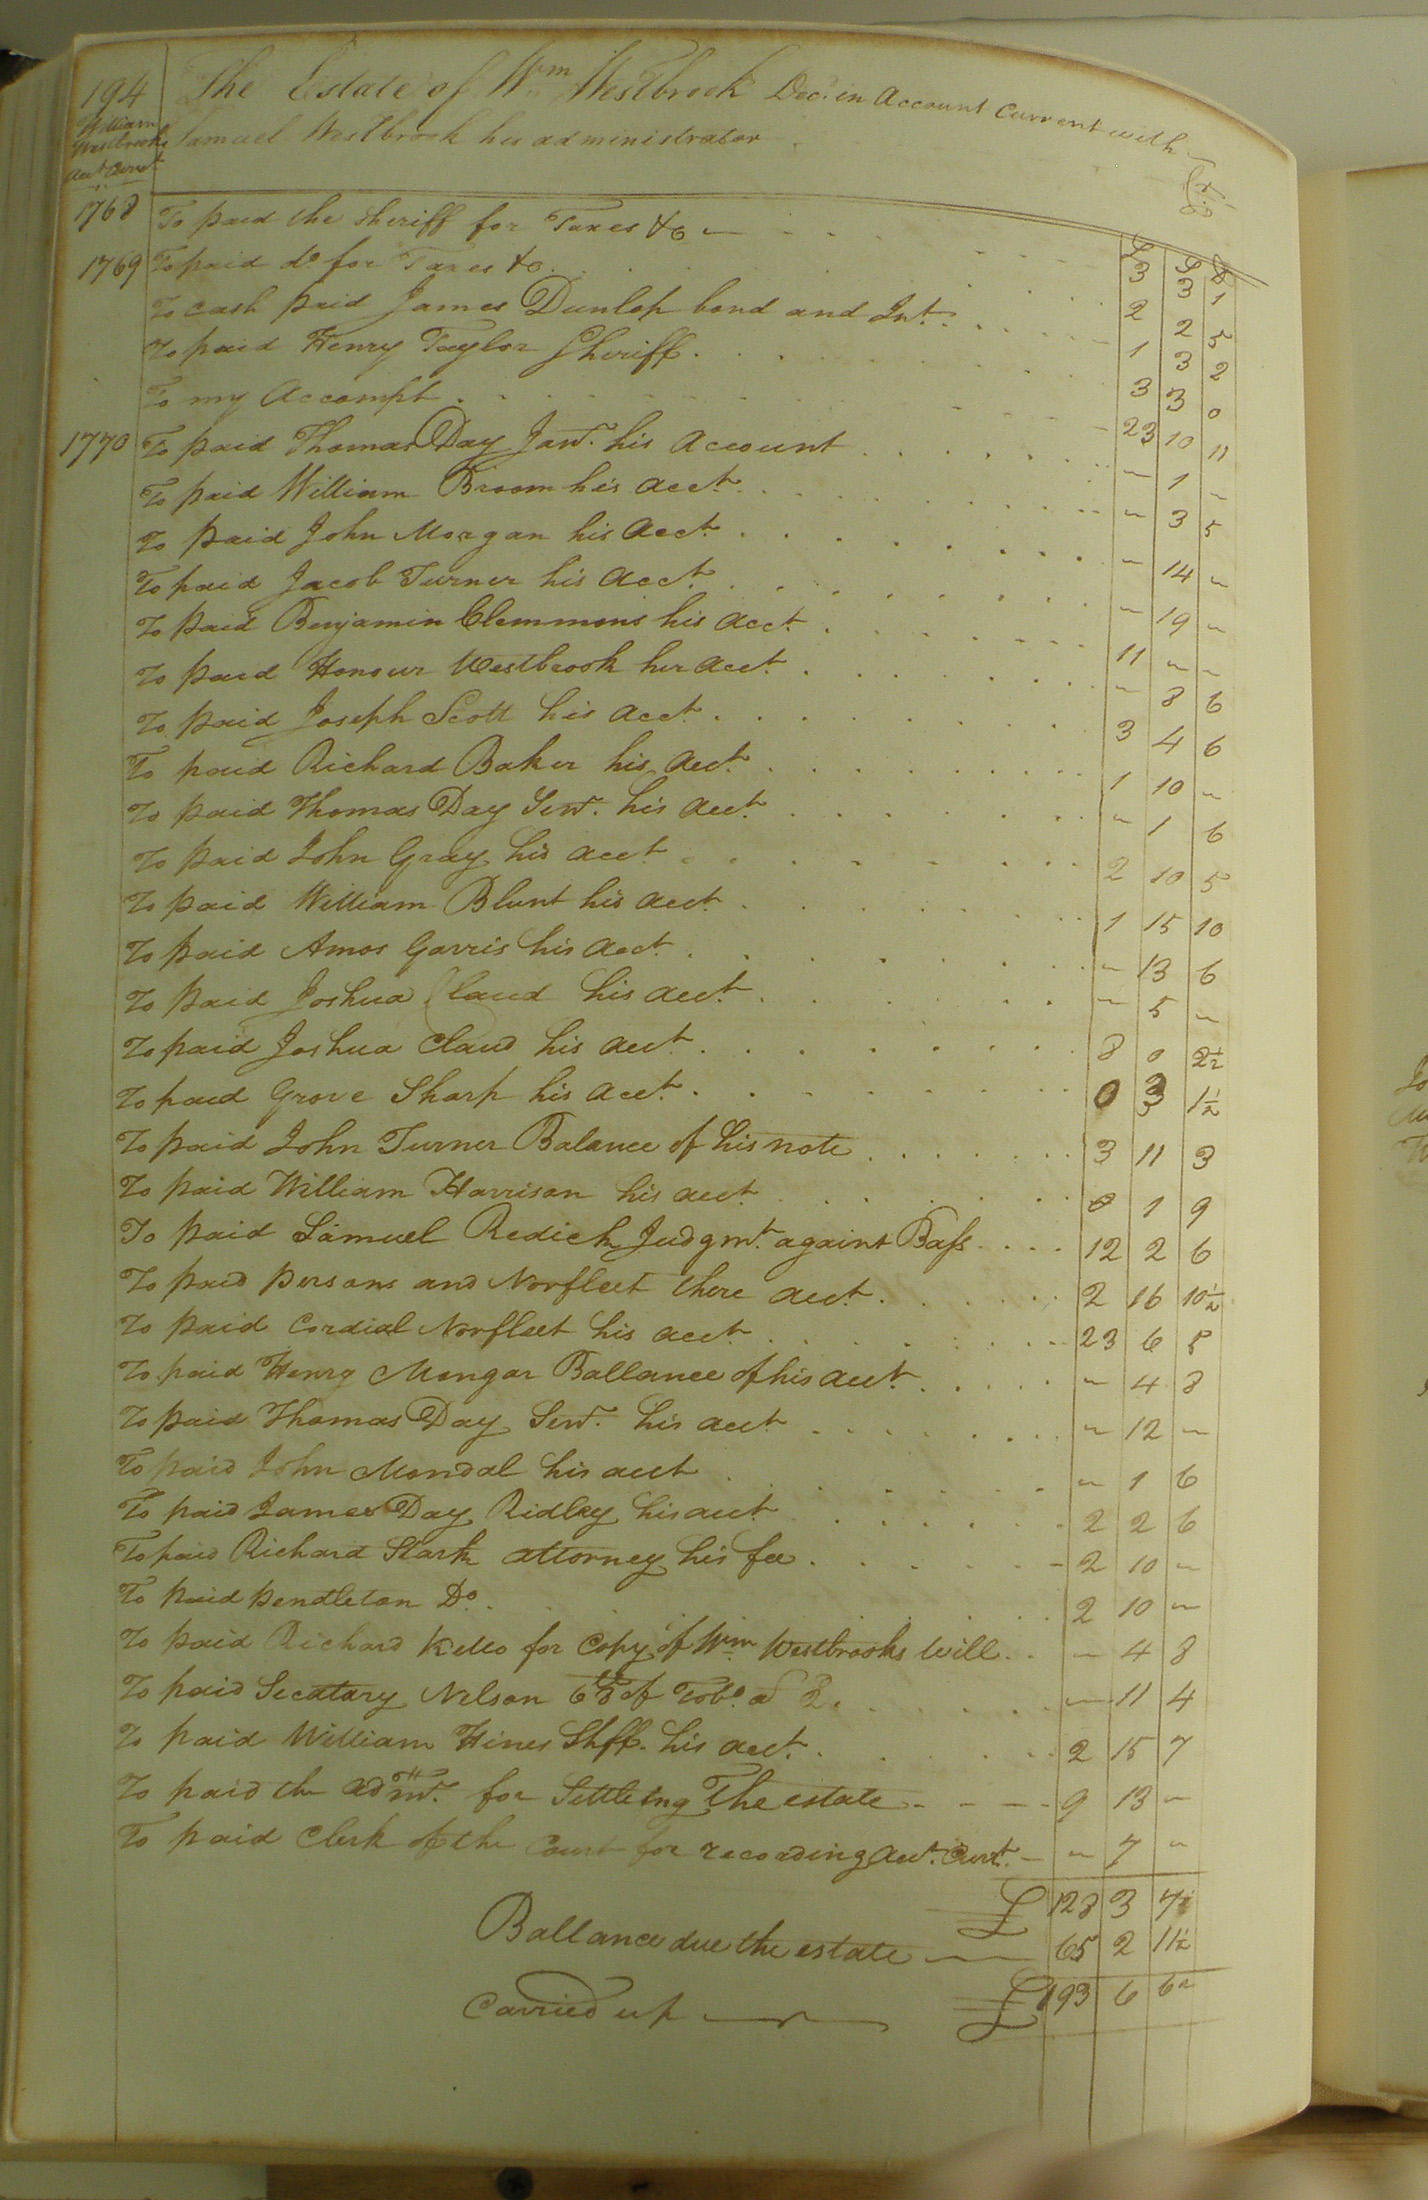 194 The Estate of Wm Westbrook Decd. in Account Current with
William Westbrooks Acct Currt
Samuel Westbrook his administrator Dr
£ S D
1768 To paid the Sheriff for Taxes &c 3 3 1
1769 To paid do for Taxes &c 2 2 5
To cash paid James Dunlop bond and Int. 1 3 2
To paid Henry Taylor Sheriff 3 3 0
To my Accompt 23 10 11
1770 To paid Thomas Day Junr. his Account - 1 -
To paid William Broom his acct. - 3 5
To paid John Morgan his acct. - 14 -
To paid Jacob Turner his acct. - 19 -
To paid Benjamin Clemmons his acct. 11 - -
To paid Honour Westbrook her acct. - 8 6
To paid Joseph Scott his acct. 3 4 6
To paid Richard Baker his acct. 1 10 -
To paid Thomas Day Senr. his acct. - 1 6
To paid John Gray his acct 2 10 5
To paid William Blunt his acct. 1 15 10
To paid Amos Garris his acct. - 13 6
To paid Joshua Claud his acct. - 5 -
To paid Joshua Claud his acct. 8 0 2½
To paid Grove Sharp his acct. 0 3 1½
To paid John Turner Balance of his note 3 11 3
To paid William Harrison his acct. 0 1 9
To paid Samuel Redick Judgmt. against Bass 12 2 6
To paid Persons and Norfleet there acct. 2 16 10½
To paid Cordial Norfleet his acct. 23 6 5
To paid Henry Mongar Ballance of his acct. - 4 8
To paid Thomas Day Senr. his acct - 12 -
To paid John Mondal his acct - 1 6
To paid James Day Ridley his acct 2 2 6
To paid Richard Stark attorney his fee 2 10 -
To paid Pendleton Do. 2 10 -
To paid Richard Kello for Copy of Wm Westbrooks Will - 4 8
To paid Secatary Nelson of Tobo. - 11 4
To paid William Hines Shff. his acct. 2 15 7
To paid the admr. for Settleing The estate 9 13 -
To paid Clerk of the Court for recording acct. Currt. - 7 -
£ 128 3 7
Ballance due the estate 65 2 11½
Carried up £ 193 6 6